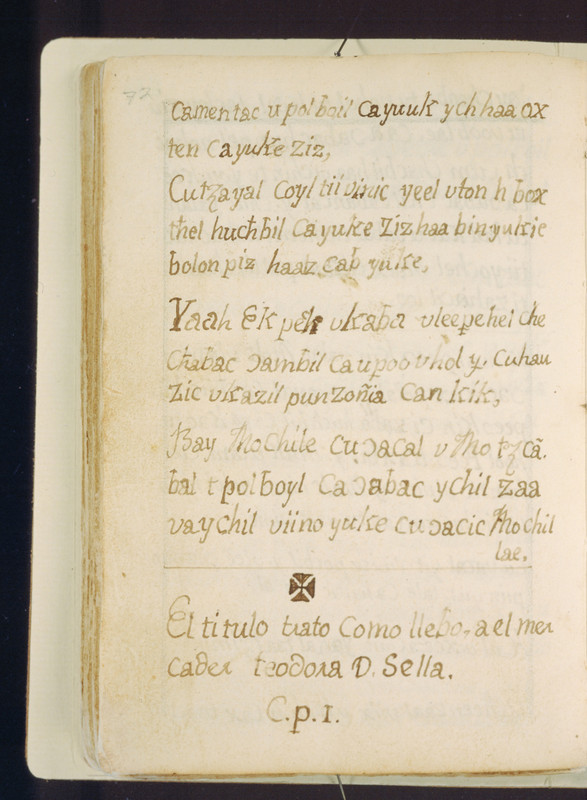 72
camentac u pol boil ca yuuk ych haa ox
ten ca yuke ziz,
Cutzayal coyl til vinic yeel uton h box
thel huchbil ca yuke ziz haa bin yukie
bolon piz haaz cab yuke,
Yaah Ek pek ukaba u le epehel che
chabac ɔambil ca u poo u hol y. cuhau
zic u kazil punzoñia can kik,
Bay Mochile cu ɔacal u Mo tzcã.
bal t pol boyl ca ɔabac ychil zaa
va ychil viino yuke cu ɔacic Mochil
lae.
El titulo trato como llebo, a el mer
cader teodora D. Sella.
C.p.1.